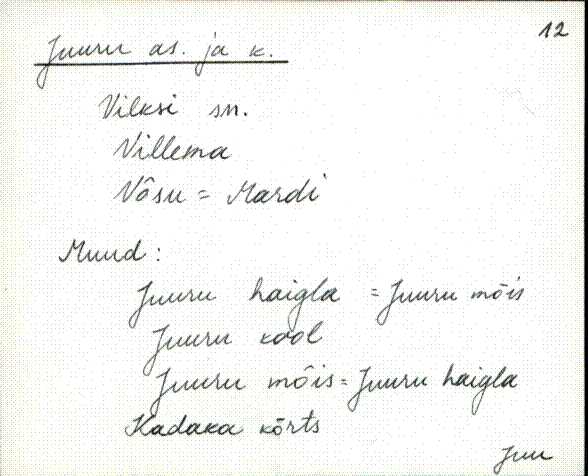 12
Juuru as. ja k.
Vilksi sm.
Villema
Võsu = Mardi
Muud:
Juuru haigla = Juuru mõis
Juuru kool
Juuru mõis = Juuru haigla
Kadaka kõrts
Juu